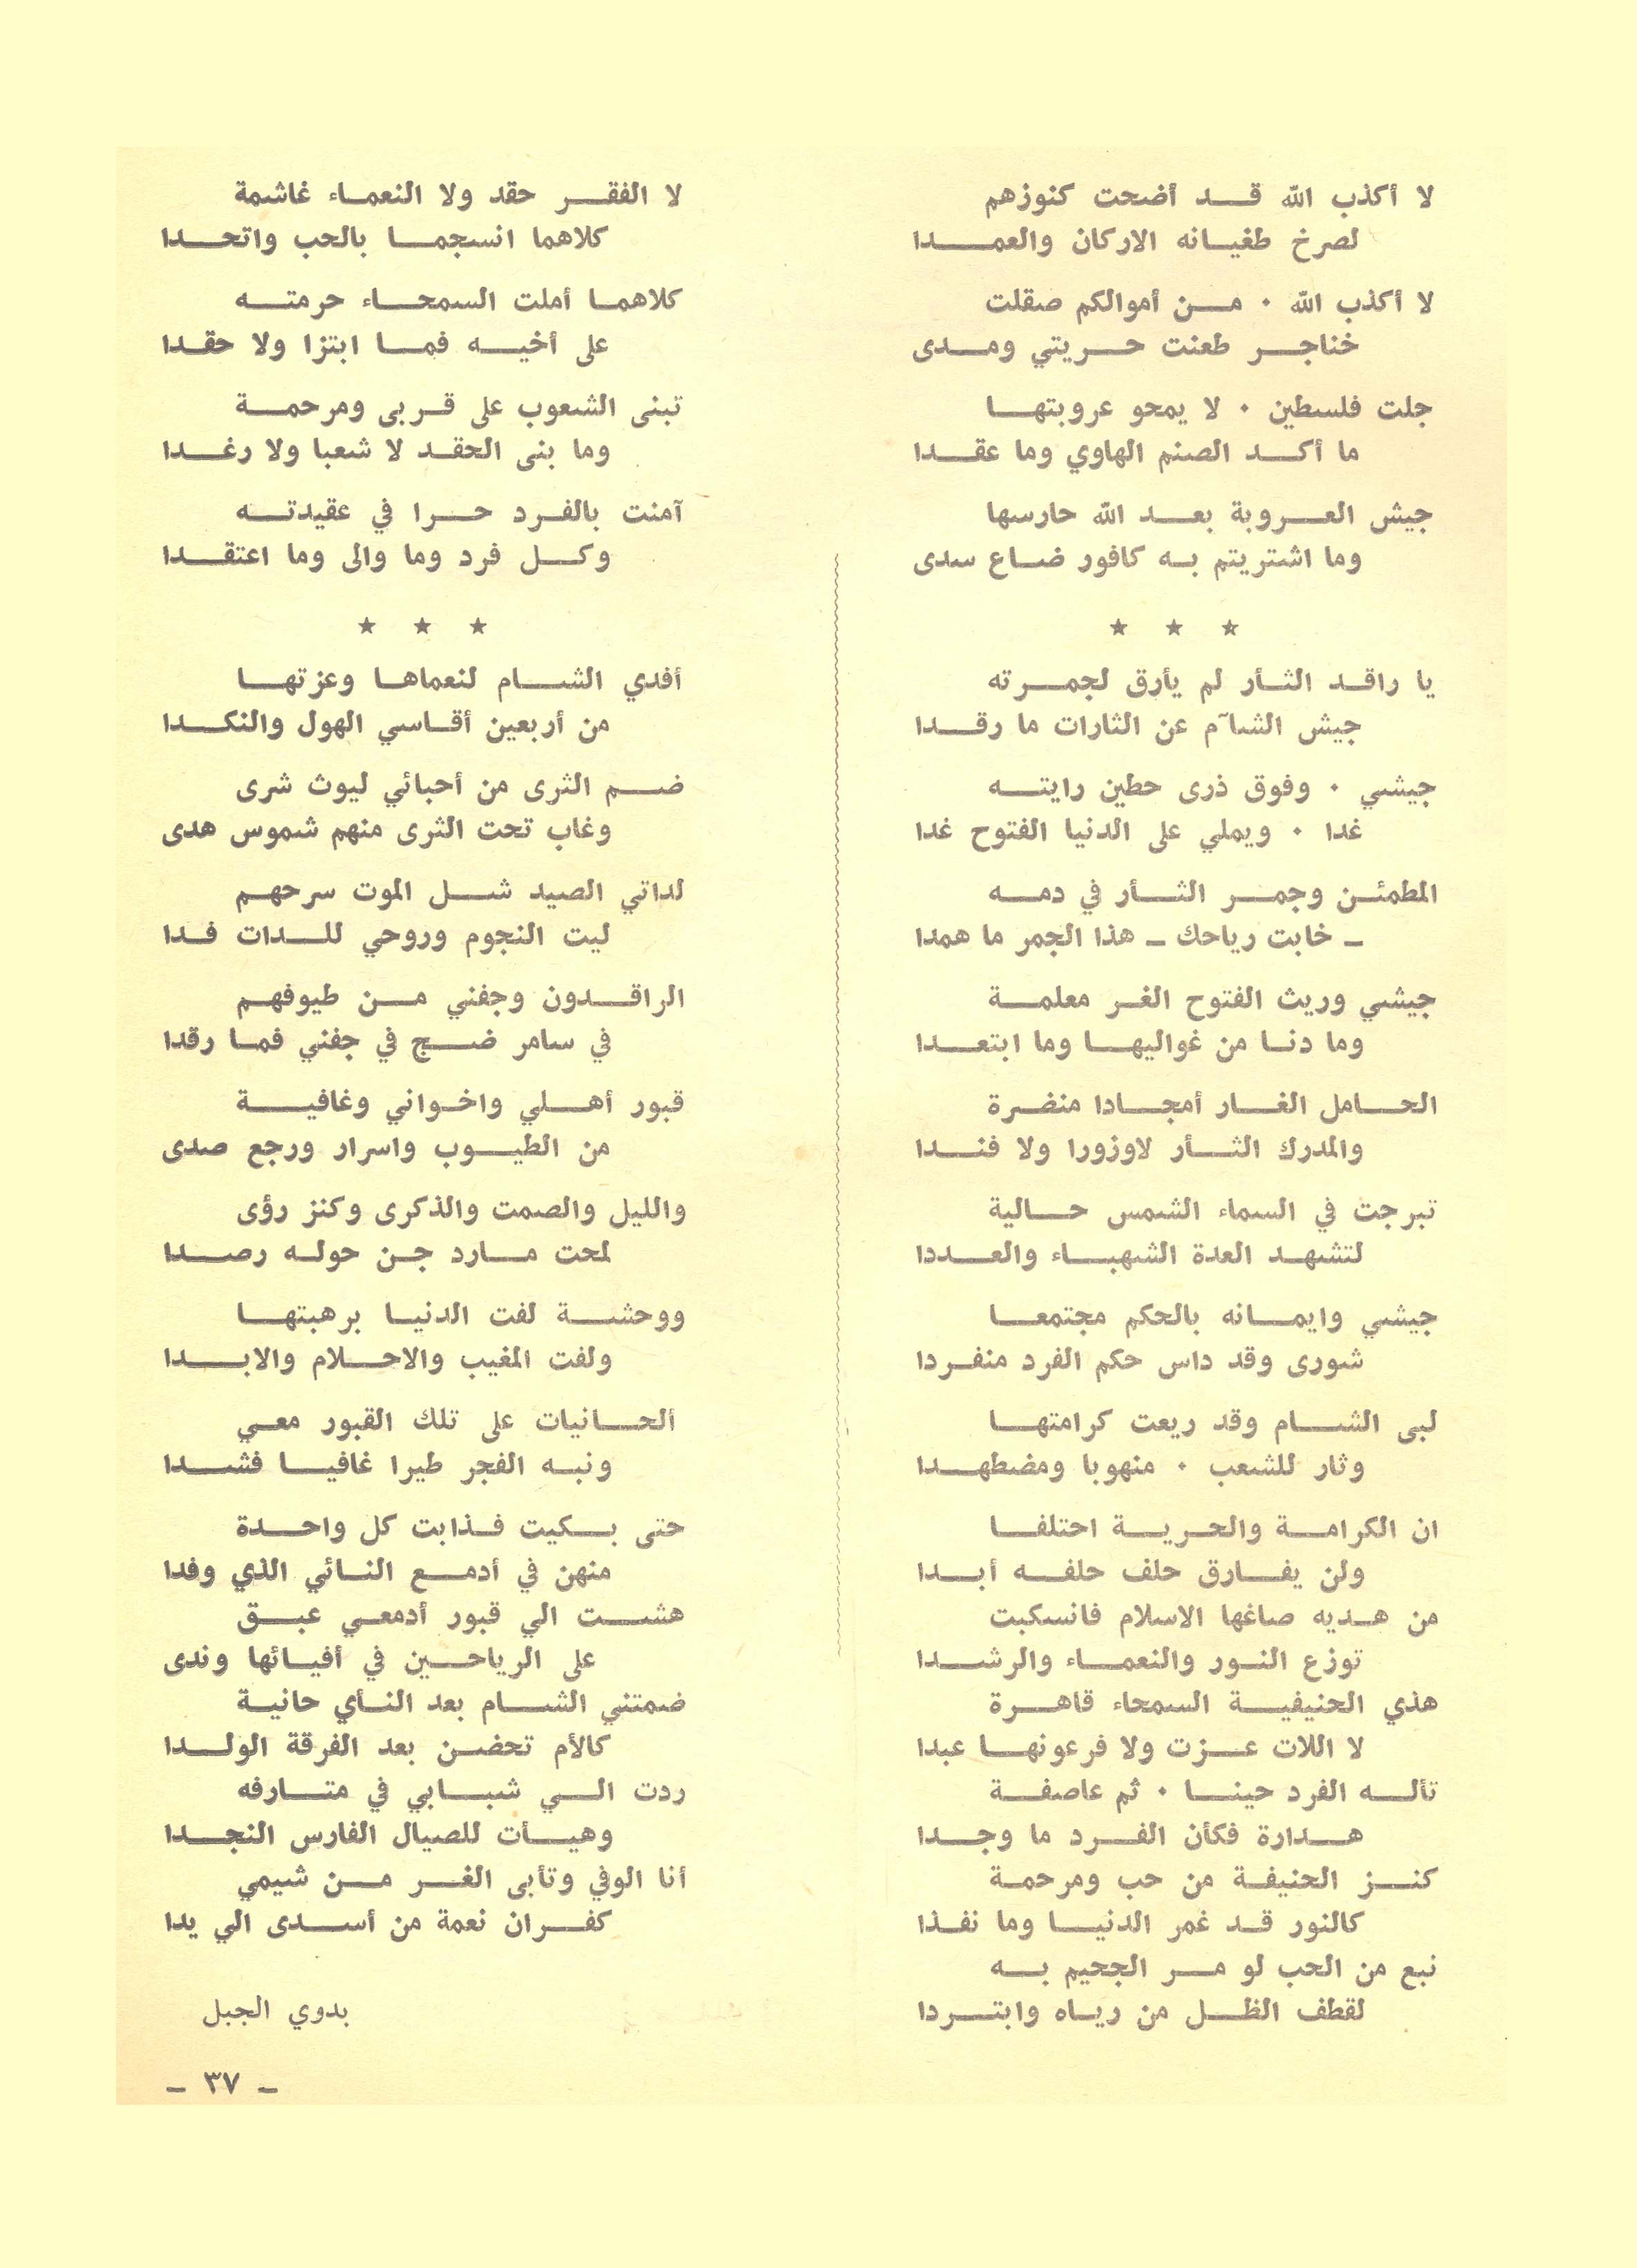 لا أكذب الله قد أضحت كنوزهم
لصرخ طغيانه الاركان والعمدا
لا أكذب الله ٠ من أموالكم صقلت
خناجر طعنت حريتي ومدى
جلت فلسطين ٠ لا يمحو عروبتها
ما أكد الصنم الهاوي وما عقدا
جيش العروبة بعد الله حارسها
وما اشتريتم به كافور ضاع سدى
★ ★ ★
يا راقد الثأر لم يأرق لجمرته
جيش الشآم عن الثارات ما رقدا
جيشي ٠ وفوق ذرى حطين رايته
غدا ٠ ويملي على الدنيا الفتوح غدا
المطمئن وجمر الثأر في دمه
ـ خابت رياحك ـ هذا الجمر ما همدا
جيشي وريث الفتوح الغر معلمة
وما دنا من غواليها وما ابتعدا
الحامل الغار أمجادا منضرة
والمدرك الثأر لاوزورا ولا فندا
تبرجت في السماء الشمس حالية
لتشهد العدة الشهباء والعددا
جيشي وايمانه بالحكم مجتمعا
شورى وقد داس حكم الفرد منفردا
لبى الشام وقد ريعت كرامتها
وثار للشعب ٠ منهوبا ومضطهدا
ان الكرامة والحرية احتلفا
ولن يفارق حلف حلفه أبدا
من هديه صاغها الاسلام فانسكبت
توزع النور والنعماء والرشدا
هذي الحنيفية السمحاء قاهرة
لا اللات عزت ولا فرعونها عبدا
تأله الفرد حينا ٠ ثم عاصفة
هدارة فكأن الفرد ما وجدا
كنز الحنيفة من حب ومرحمة
كالنور قد غمر الدنيا وما نفذا
نبع من الحب لو مر الجحيم به
لقطف الظل من رياه وابتردا
لا الفقر حقد ولا النعماء غاشمة
كلاهما انسجما بالحب واتحدا
كلاهما أملت السمحاء حرمته
على أخيه فما ابتزا ولا حقدا
تبنى الشعوب على قربى ومرحمة
وما بنى الحقد لا شعبا ولا رغدا
آمنت بالفرد حرا في عقيدته
وكل فرد وما والى وما اعتقدا
★ ★ ★
أفدي الشام لنعماها وعزتها
من أربعين أقاسي الهول والنكدا
ضم الثرى من أحبائي ليوث شرى
وغاب تحت الثرى منهم شموس هدى
لداتي الصيد شل الموت سرحهم
ليت النجوم وروحي للدات فدا
الراقدون وجفني من طيوفهم
في سامر ضج في جفني فما رقدا
قبور أهلي واخواني وغافية
من الطيوب واسرار ورجع صدى
والليل والصمت والذكرى وكنز رؤى
لمحت مارد جن حوله رصدا
ووحشة لفت الدنيا برهبتها
ولفت المغيب والاحلام والابدا
ألحانيات على تلك القبور معي
ونبه الفجر طيرا غافيا فشدا
حتى بكيت فذابت كل واحدة
منهن في أدمع النائي الذي وفدا
هشت الي قبور أدمعي عبق
على الرياحين في أفيائها وندى
ضمتني الشام بعد النأي حانية
كالأم تحضن بعد الفرقة الولدا
ردت الي شبابي في متارفه
وهيأت للصيال الفارس النجدا
أنا الوفي وتأبى الغر من شيمي
كفران نعمة من أسدى الي يدا
بدوي الجبل
ـ ٣٧ ـ